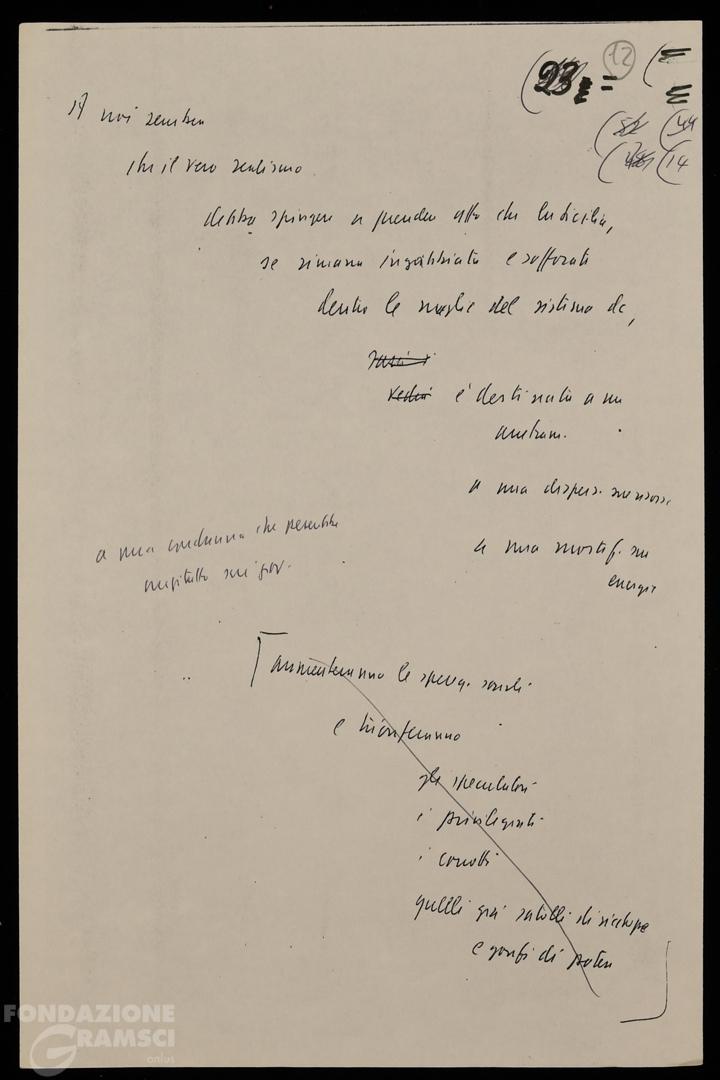 (23 =
12
(52 (44
(14
A noi sembra
che il vero realismo
debba spingere a prender atto che la Sicilia,
se rimane ingabbiata e soffocata
dentro le maglie del sistema dc,
è destinata a un
a una dispers.
a una mortif. sue
energie
a una condanna che peserebbe
anzitutto sui giov.
aumenteranno le spereq. sociali
e trionferanno
gli speculatori
i privilegiati
i corrotti
quelli già satolli di ricchezze
e gonfi di potere
FONDAZIONE
GRAMSCI
onlus